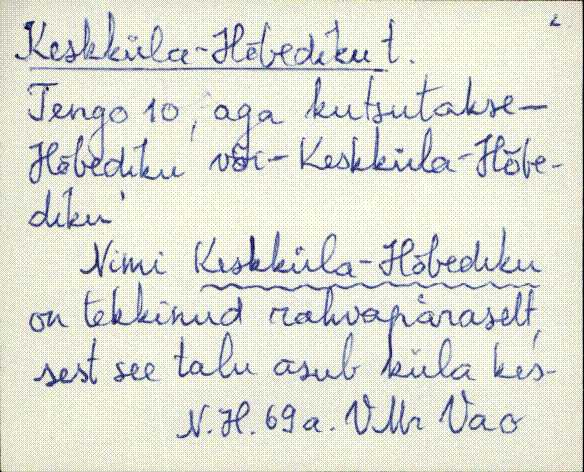 2
Keskküla-Hõbediku t.
Tengo 10, aga kutsutakse-
Hõbediku või - Keskküla-Hõbe-
diku
Nimi Keskküla-Hõbediku
on tekkinud rahvapäraselt,
sest see talu asub küla kes-
N.H. 69 a. VMr Vao